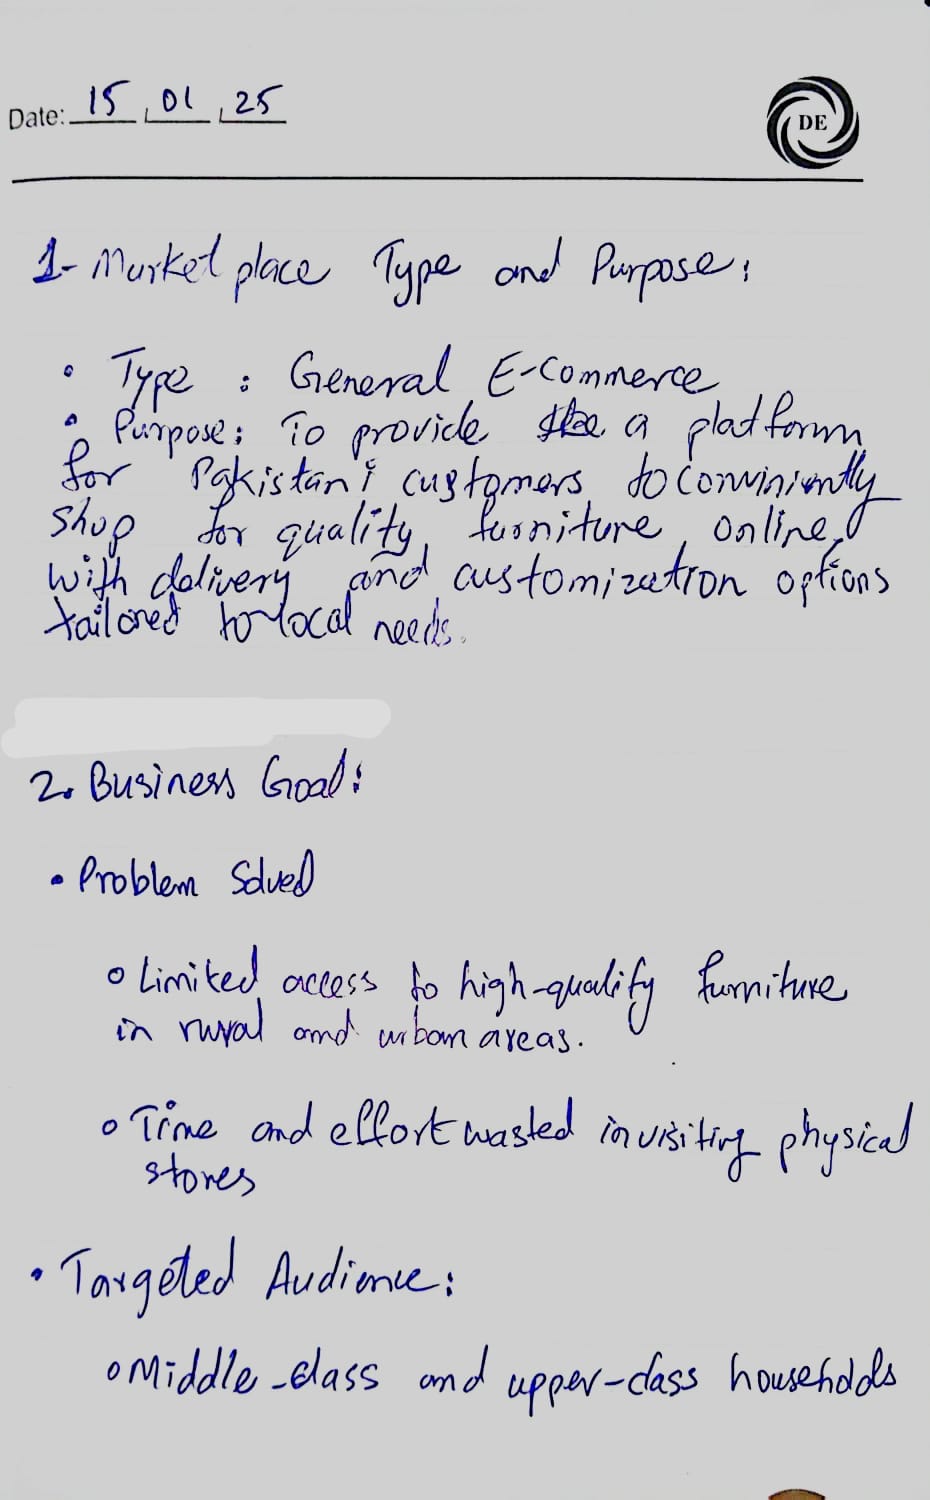 Date: 15, 01, 25
DE
1- Market place Type and Purpose:
• Type : General E-Commerce
• Purpose: To provide the a platform
for Pakistani customers to conviniently
shop for quality furniture online,
with delivery and customization options
tailored to local needs.
2. Business Goal:
• Problem Solved
o Limited access to high-quality furniture
in rural and urban areas.
o Time and effort wasted in visiting physical
stores
• Targeted Audience:
o Middle-class and upper-class households